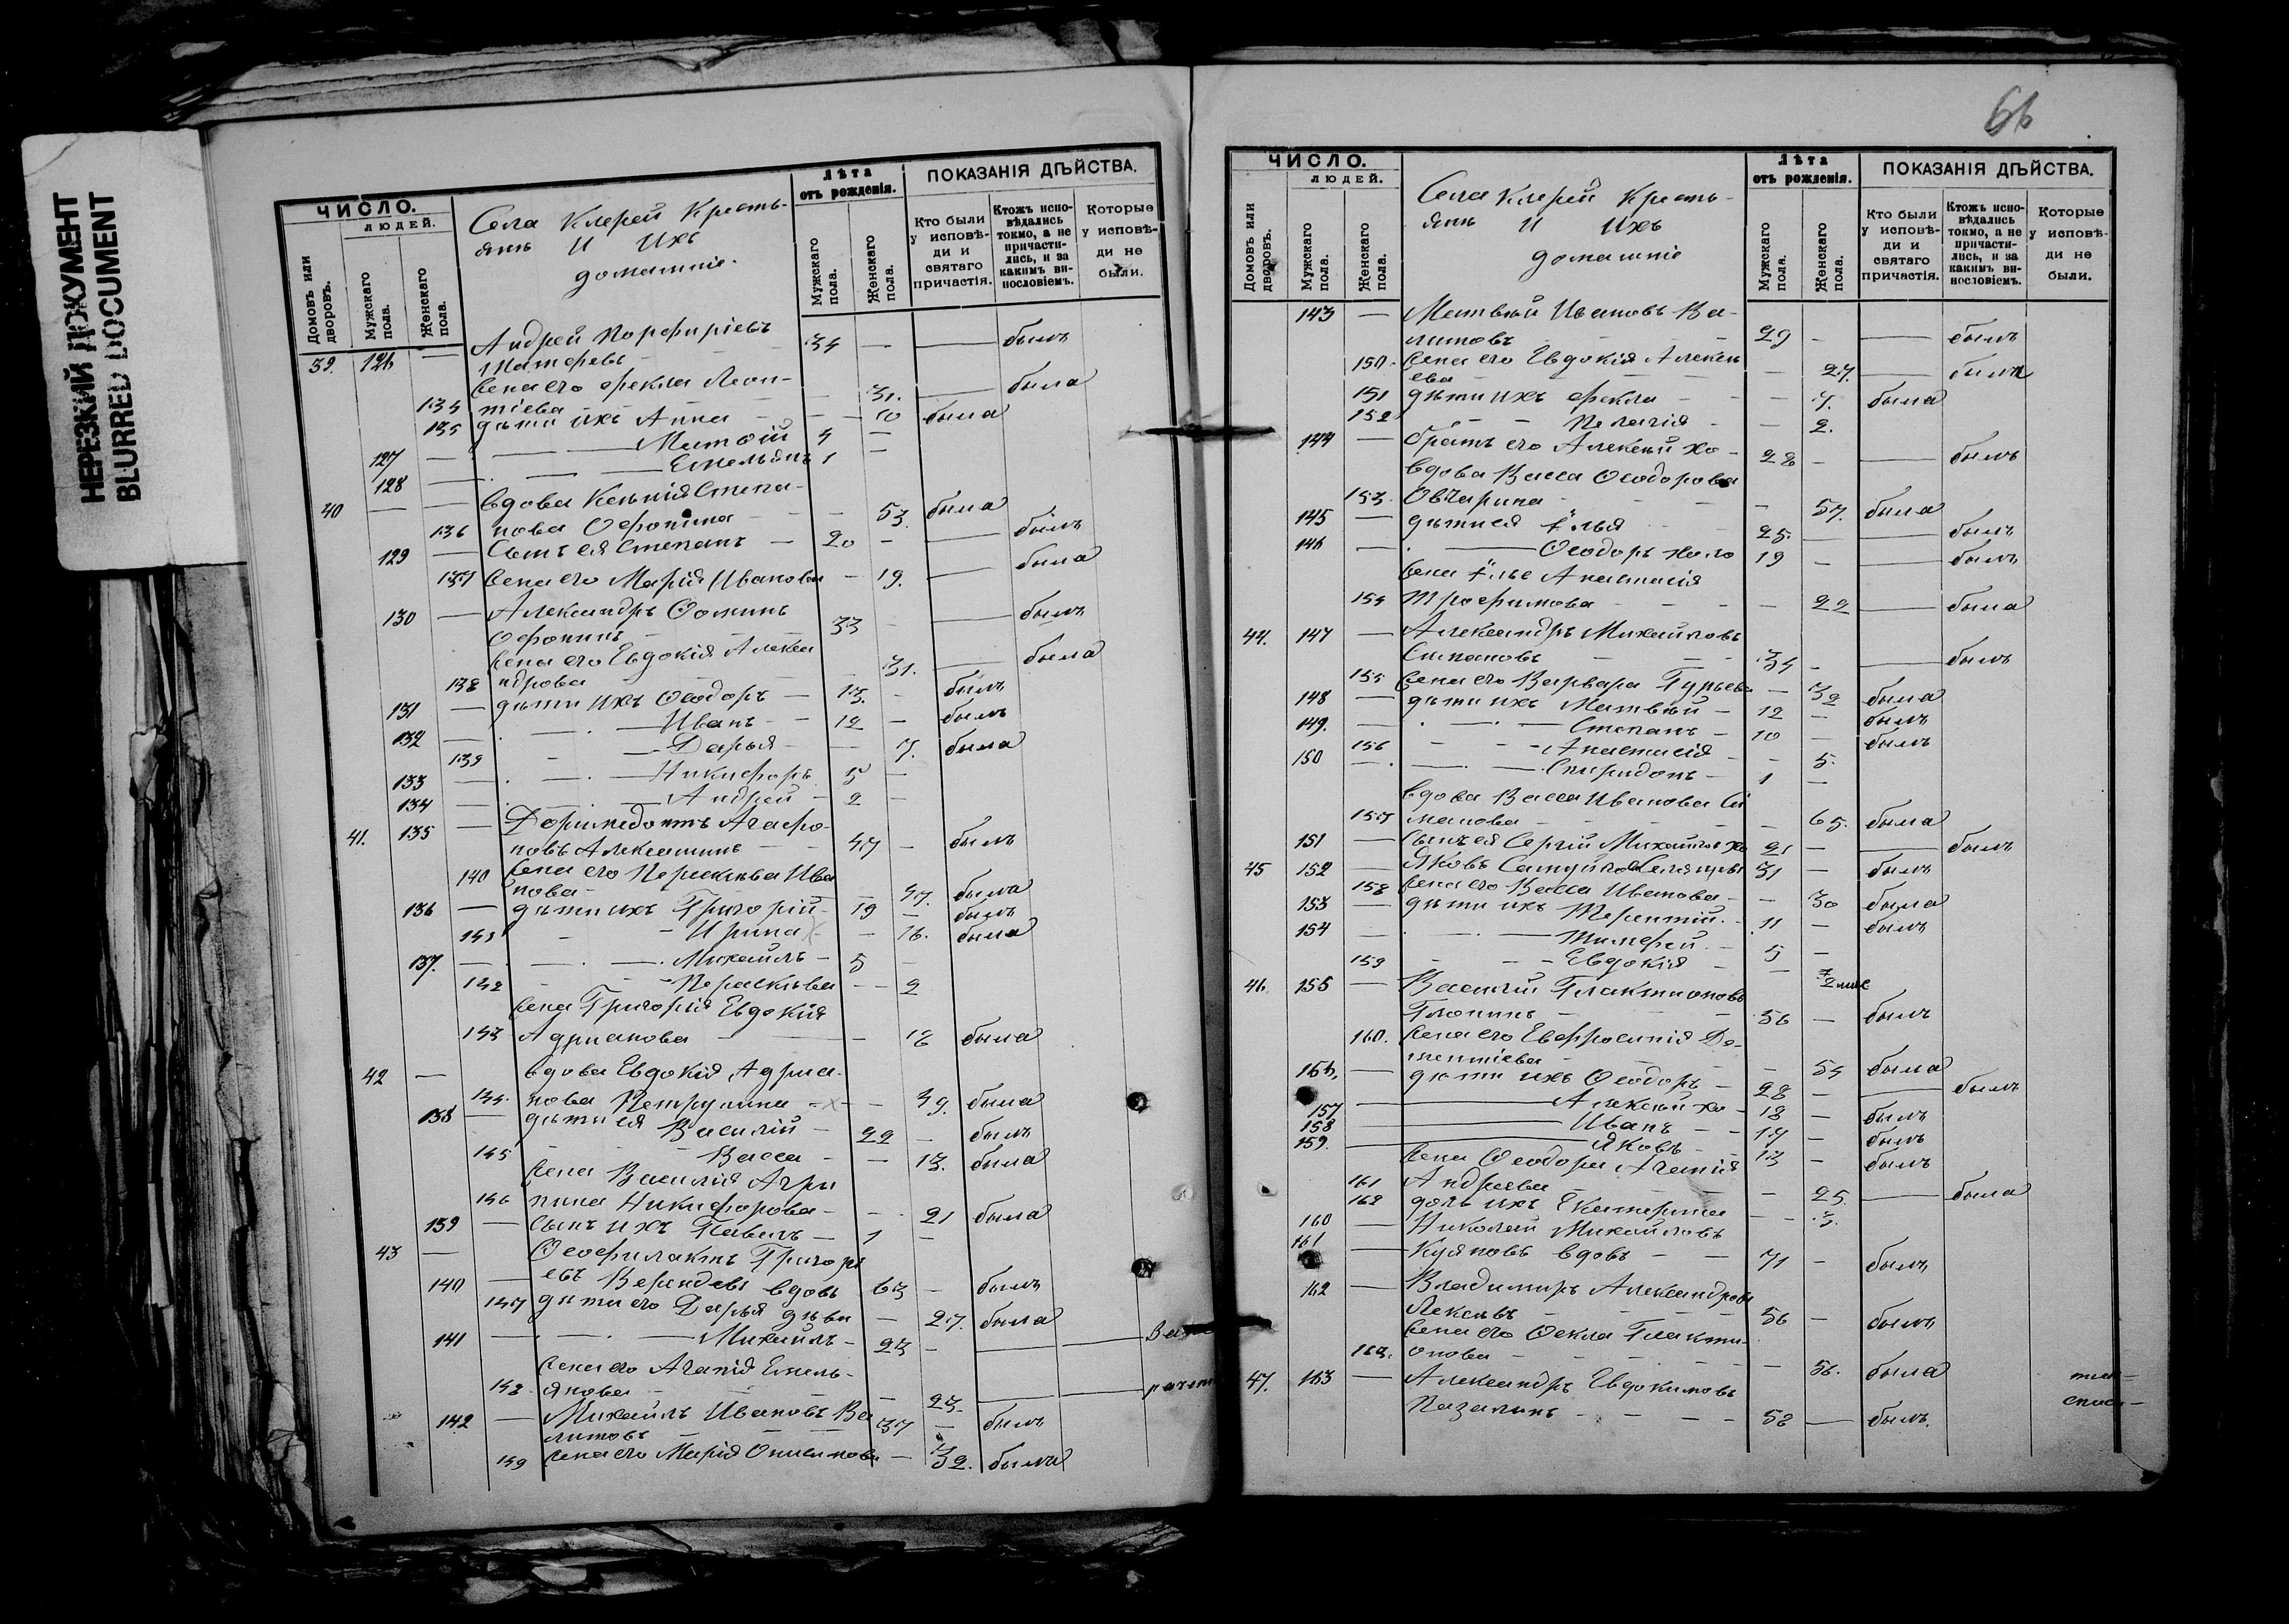 НЕРЕЗКИЙ ДОКУМЕНТ
BLURRED DOCUMENT
ЧИСЛО.
ЛЮДЕЙ.
Домовъ или дворовъ.
Мужскаго пола.
Женскаго пола.
Села Клерей Кресть-
янъ И Ихъ
домашніе.
Лѣта
отъ рожденія.
Мужскаго пола.
Женскаго пола.
ПОКАЗАНІЯ ДѢЙСТВА.
Кто были у исповѣ-ди и святаго причастія.
Ктожъ испо-вѣдались токмо, а не причасти-лись, и за какимъ ви-нословіемъ.
Которые у исповѣ-ди не были.
39. 126 — Андрей Порфиріевъ
34 — — былъ
Жена его Фекла Леон-
134 тіева — 31. — была
135 дѣти ихъ Анна — 10 была
127 — Матѳій 4 —
128 — Емельянъ 1 —
40 — — вдова Ксенія Степа-
136 нова Офонина — 53. была
129 — Сынъ ея Степанъ — 20 — — былъ
137 Жена его Марія Иванова — 19. — была
130 — Александръ Ѳоминъ
Офонинъ 33 — — былъ
Жена его Евдокія Алекса
138 ндрова — 31. — была
131 — дѣти ихъ Ѳеодоръ — 13. — былъ
132 — Иванъ — 12 — былъ
139 — Дарья — 7. была
133 — Никифоръ 5 —
134 — Андрей — 2 —
41. 135 — Доримедонтъ Агафо-
новъ Алексашинъ — 47 — былъ
140 Жена его Параскева Ива
нова — 47. была
136 — дѣти ихъ Григорій — 19 — былъ
141 — Ирина — 16. была
137. — Михаилъ — 5 —
142 — Параскева — 2
Жена Григорія Евдокія
143 Адрианова — 18 была
42 — вдова Евдокія Адриа-
144. нова Петрунина — 49. была
138 — дѣти ея Василій — 22 — былъ
145 — Васса — 13. была
Жена Василія Агри
146 пина Никифорова — 21 была
139 — Сынъ ихъ Павелъ — 1 —
43 — Ѳеофилактъ Григорь
140 — евъ вдовъ 63 — былъ
147 дѣти его Дарья дѣва — 27. была
141 — Михаилъ — 23 — —
Жена его Агапія Емель-
148. янова — 23. —
142 — Михаилъ Ивановъ Ва
литовъ 37 — былъ
149 Жена его Марія Онисимова — 32. была
66
ЧИСЛО.
ЛЮДЕЙ.
Домовъ или дворовъ.
Мужскаго пола.
Женскаго пола.
Села Клерей Кресть-
янъ И Ихъ
домашніе
Лѣта
отъ рожденія.
Мужскаго пола.
Женскаго пола.
ПОКАЗАНІЯ ДѢЙСТВА.
Кто были у исповѣ-ди и святаго причастія.
Ктожъ испо-вѣдались токмо, а не причасти-лись, и за какимъ ви-нословіемъ.
Которые у исповѣ-ди не были.
143 — Матвѣй Ивановъ Ва-
литовъ 29 — — былъ
150. Жена его Евдокія Алексѣ
ева — 27. — была
151 дѣти ихъ Фекла — 7. была
152 — Пелагія — 2.
144 — братъ его Алексѣй хо- 28 — — былъ
вдова Васса Ѳеодорова
153. Овчарина — 57. была
145 — дѣти ея Илья 25. — — былъ
146 — Ѳеодоръ холо 19 — — былъ
Жена Ильи Анастасія
154 Трофимова — 22 — была
44. 147 — Александръ Михайловъ
34 — — былъ
155 Жена его Варвара Гурьева — 32 была
148 — дѣти ихъ Матвѣй — 12 — былъ
149. — Степанъ — 10 — былъ
156 — Анастасія — 5.
150 — Спиридонъ — 1 —
вдова Васса Иванова Си
157 манова — 65. была
151 — Сынъ ея Сергій Михайловъ хо 21 — — былъ
45 152 — Яковъ 31 — былъ
158 Жена его Васса Иванова — 30 была
153 — дѣти ихъ Терентій. 11 — былъ
154 — Тимофей — 5 —
159 — Евдокія —
46 155 — Василій Галактионовъ
56 — былъ
160. Жена его Евфросинія До-
ментіева — 54 была
156. — дѣти ихъ Ѳеодоръ — 28 — — былъ
157 — Алексѣй хо- 18 — былъ
158 — Иванъ — 17 — былъ
159. — Яковъ — 13 — былъ
Жена Ѳеодора Агапія
161 Андреева — 25. — была
162 дочь ихъ Екатерина — 3.
160 — Николай Михайловъ
161 — Куяновъ вдовъ — 71 — былъ
162 — Владимиръ Александровъ
56 — былъ
Жена его Ѳекла Галакти-
163. онова — 56. была
47. 163 — Александръ Евдокимовъ
Пазалинъ — 58 — былъ.